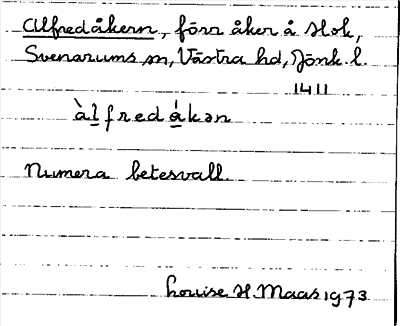 Alfredåkern, förr åker å Hok,
Svenarums sn, Västra hd, Jönk. l.
1411
àlfredákən
Numera betesvall.
Louise H. Maas 1973